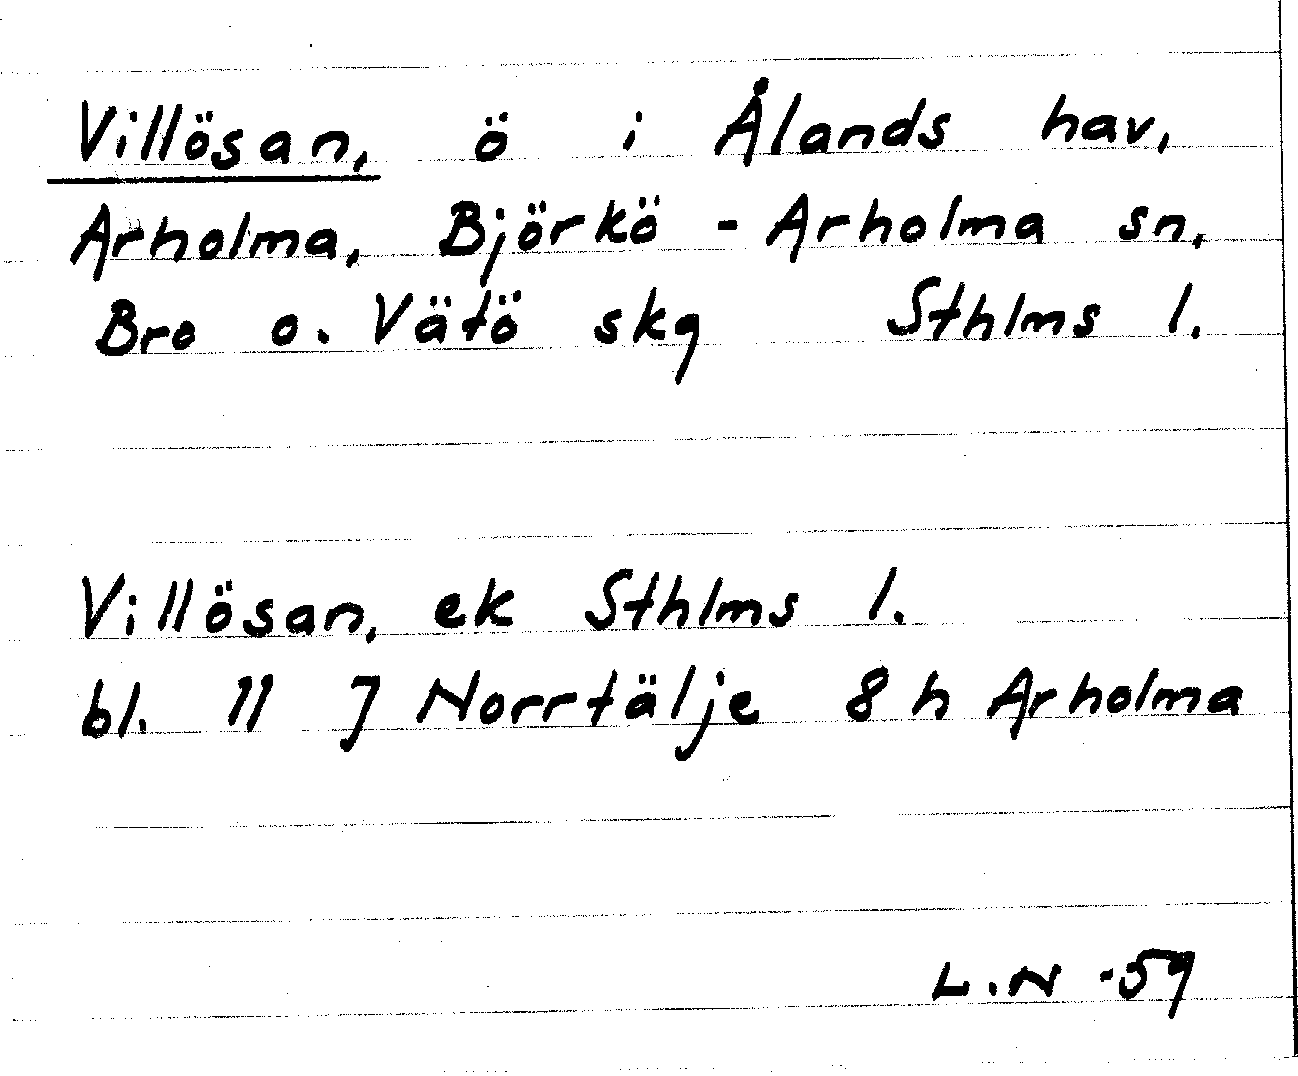 Villösan, ö i Ålands hav,
Arholma, Björkö - Arholma sn,
Bro o. Vätö skg Sthlms l.
Villösan, ek Sthlms l.
bl. 11 J Norrtälje 8 h Arholma
L.N -59